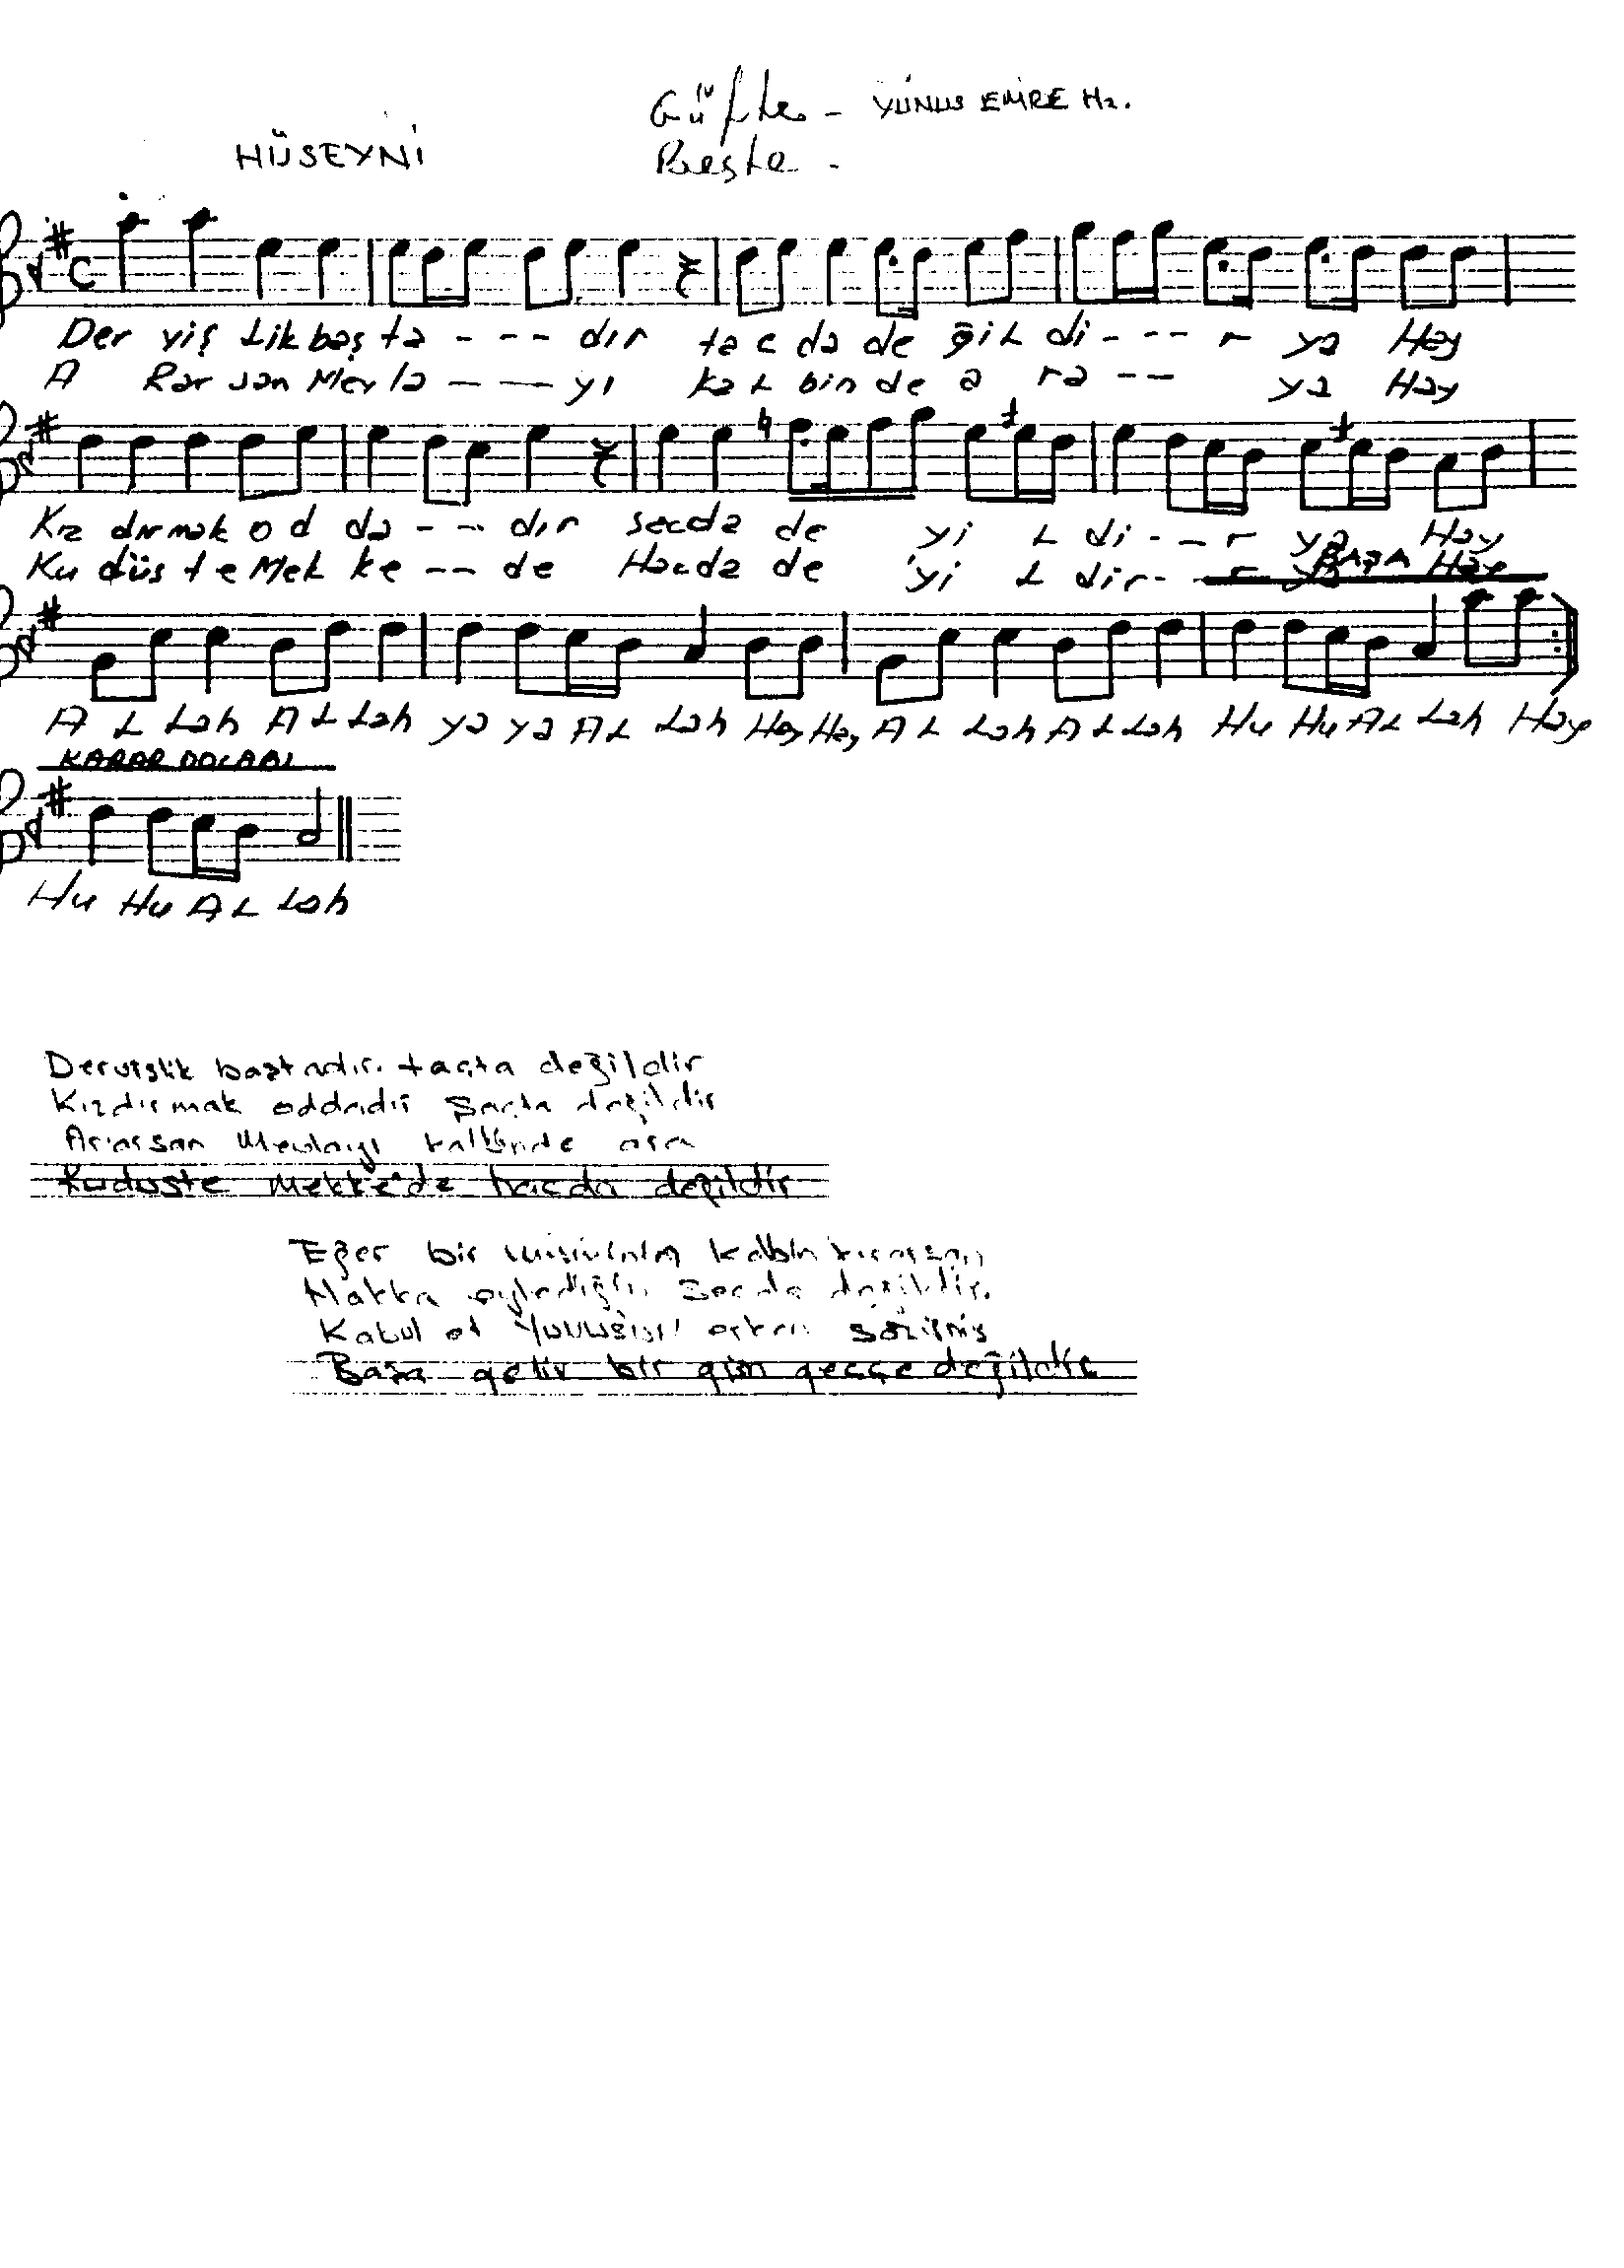 Güfte - YUNUS EMRE Hz.
HÜSEYNİ
Beste -
Der viş Lik baş ta - - - dır tac da de ğil di - - - r ya Hay
A Rar san Mev la - - - yı kaL bin de a ra - - ya Hay
Kız dırmak o d da - - dır sacda de yi L di - - - r ya Hay
Ku düs te Mek ke - - de Hacda de yi L dir - - r ya Hay
BAŞA
A L Lah A L Lah ya ya AL Lah Hay Hay A L Lah A L Lah Hu Hu AL Lah Hay
KARAR DOLABI
Hu Hu AL Lah
Dervişlik baştadır. taçta değildir
Kızdırmak oddadır saçta değildir
Ararsan Mevlayı kalbinde ara
Kudüste Mekke'de hacda değildir
Eğer bir kalbin kırarsan
Hakka eylediğin secde değildir.
Kabul et
Başa gelir bir gün geççe değildir